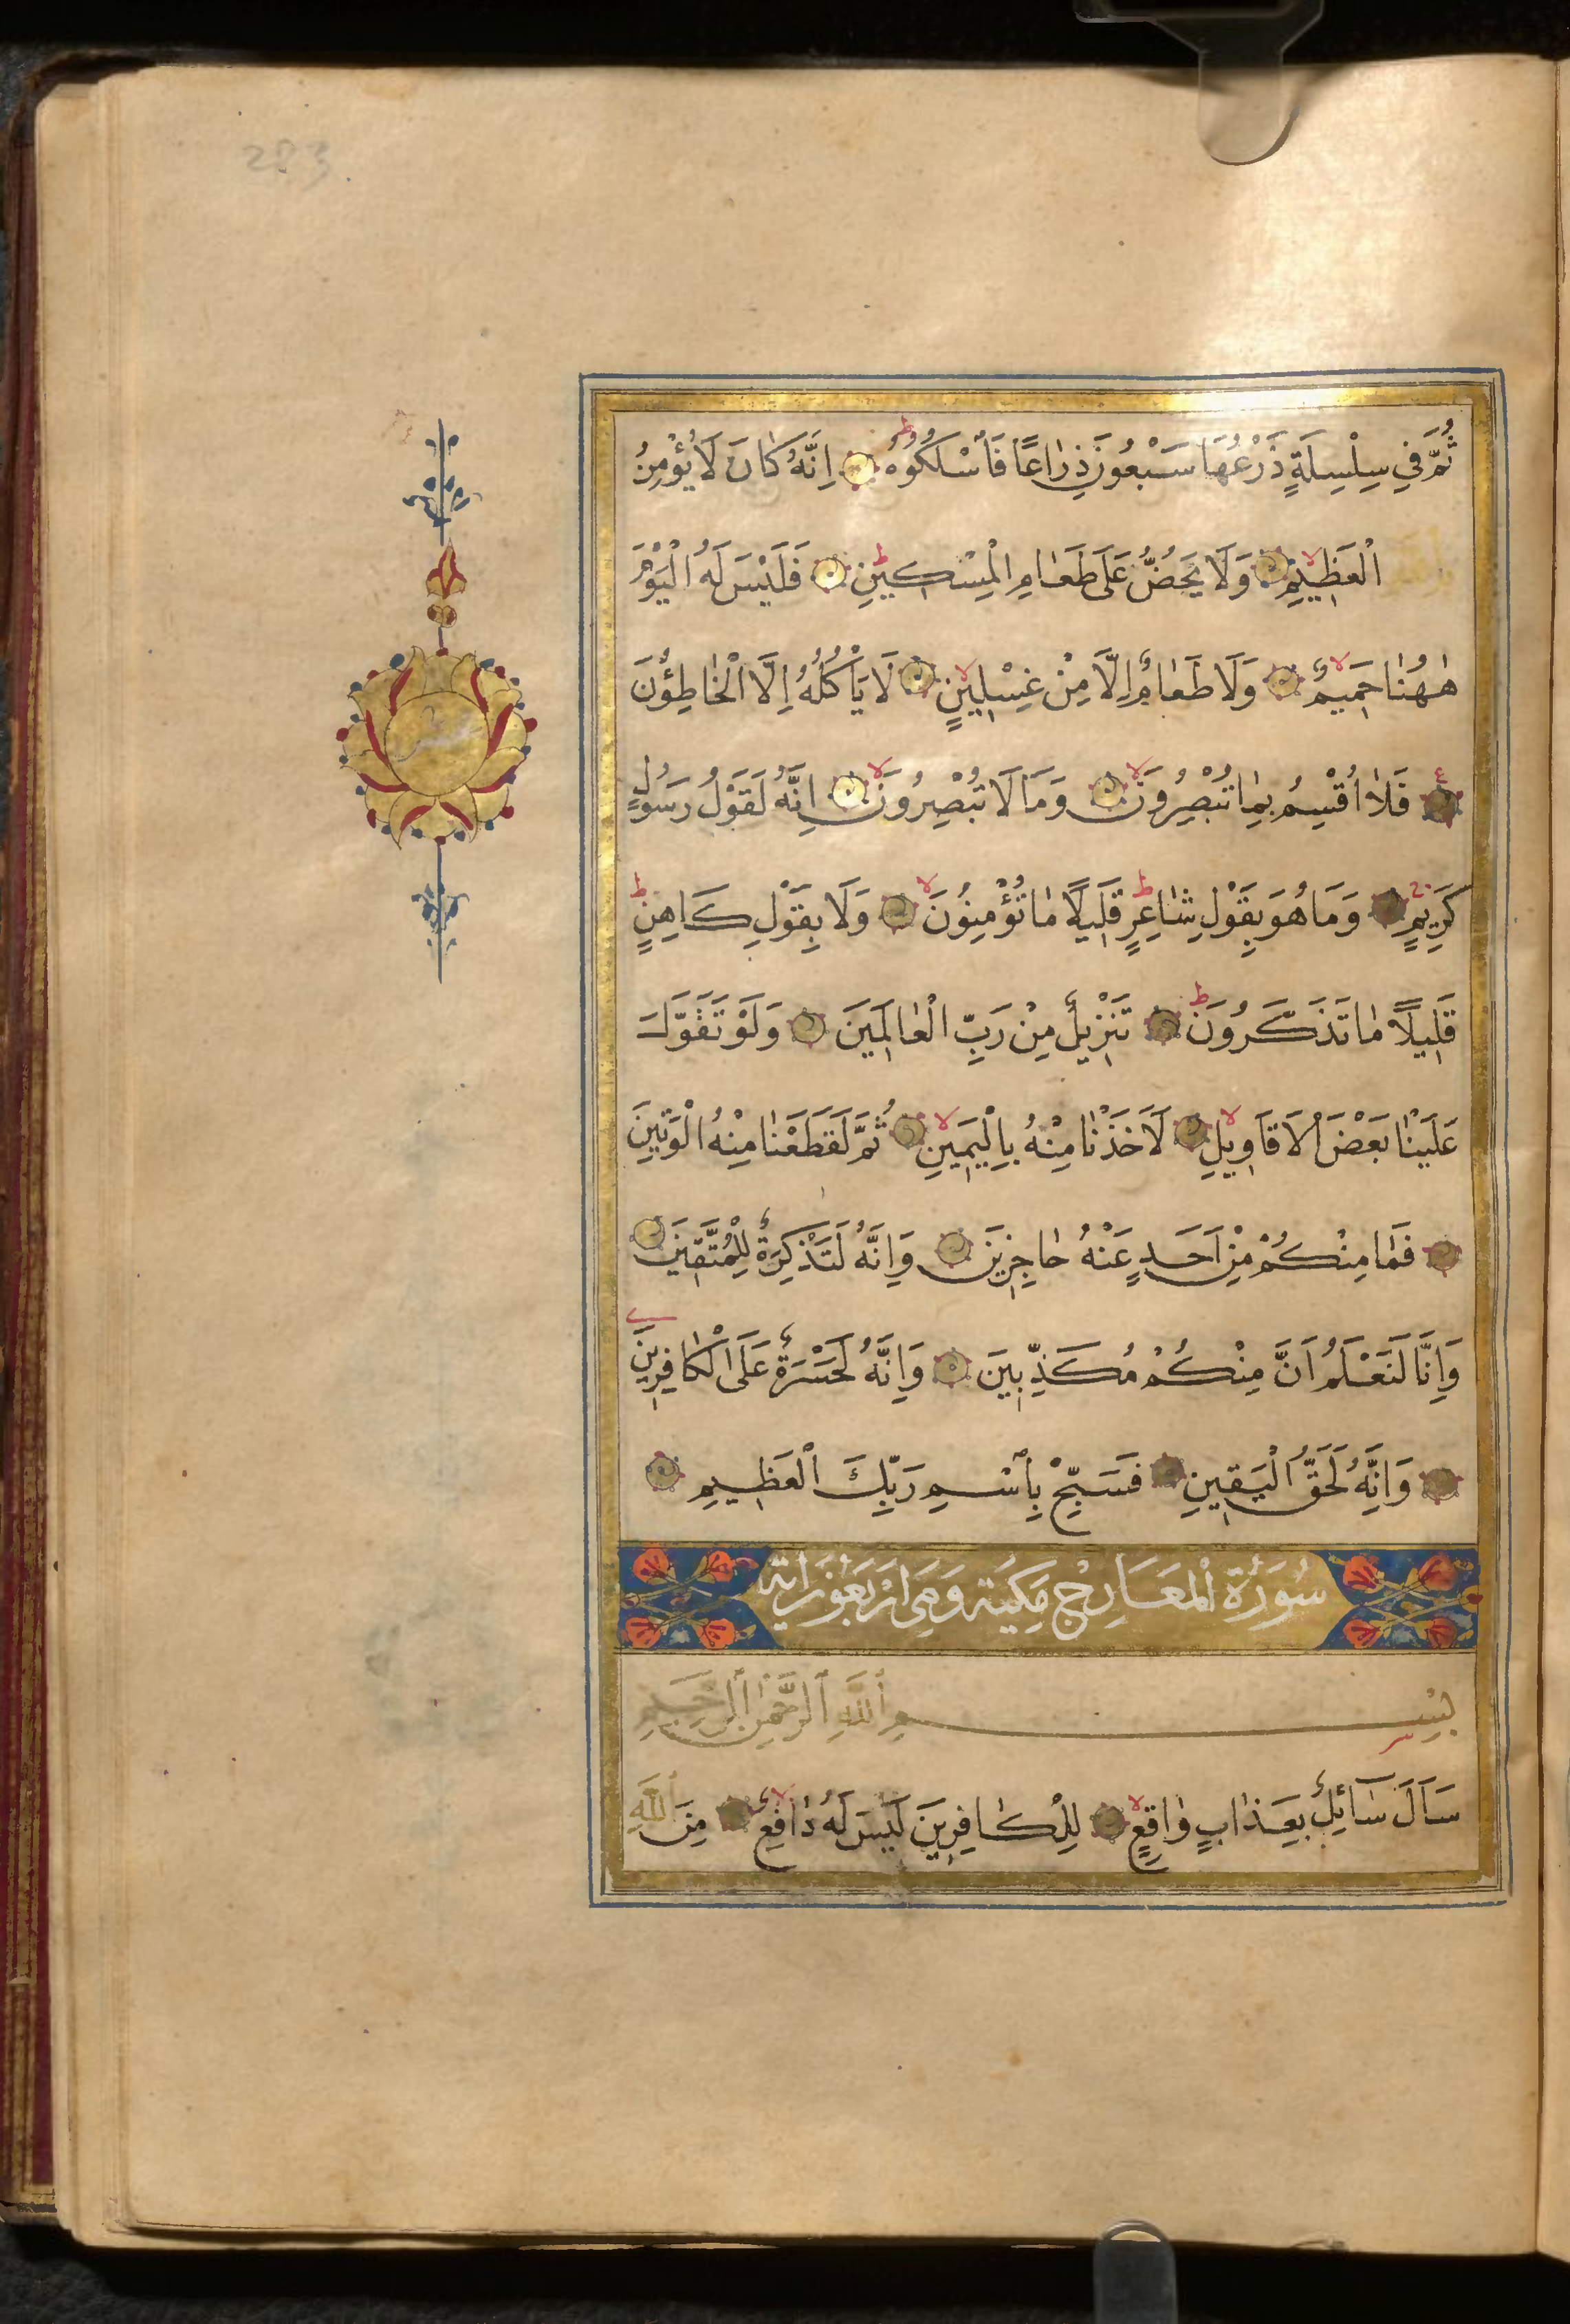 283.
ثُمَّ فِي سِلْسِلَةٍ ذَرْعُهَا سَبْعُونَ ذِرَاعًا فَاسْلُكُوهُ اِنَّهُ كَانَ لَا يُؤْمِنُ
بِاللّٰهِ الْعَظِيمِ وَلَا يَحُضُّ عَلَى طَعَامِ الْمِسْكِينِ فَلَيْسَ لَهُ الْيَوْمَ
هٰهُنَا حَمِيمٌ وَلَا طَعَامٌ اِلَّا مِنْ غِسْلِينٍ لَا يَأْكُلُهُ اِلَّا الْخَاطِؤُنَ
فَلَا اُقْسِمُ بِمَا تُبْصِرُونَ وَمَا لَا تُبْصِرُونَ اِنَّهُ لَقَوْلُ رَسُولٍ
كَرِيمٍ وَمَا هُوَ بِقَوْلِ شَاعِرٍ قَلِيلًا مَا تُؤْمِنُونَ وَلَا بِقَوْلِ كَاهِنٍ
قَلِيلًا مَا تَذَكَّرُونَ تَنْزِيلٌ مِنْ رَبِّ الْعَالَمِينَ وَلَوْ تَقَوَّلَ
عَلَيْنَا بَعْضَ الْاَقَاوِيلِ لَاَخَذْنَا مِنْهُ بِالْيَمِينِ ثُمَّ لَقَطَعْنَا مِنْهُ الْوَتِينَ
فَمَا مِنْكُمْ مِنْ اَحَدٍ عَنْهُ حَاجِزِينَ وَاِنَّهُ لَتَذْكِرَةٌ لِلْمُتَّقِينَ
وَاِنَّا لَنَعْلَمُ اَنَّ مِنْكُمْ مُكَذِّبِينَ وَاِنَّهُ لَحَسْرَةٌ عَلَى الْكَافِرِينَ
وَاِنَّهُ لَحَقُّ الْيَقِينِ فَسَبِّحْ بِاسْمِ رَبِّكَ الْعَظِيمِ
سُورَةُ الْمَعَارِجِ مَكِيَّة وَهِىَ اَرْبَعُونَ اٰية
بِسْمِ اللّٰهِ الرَّحْمٰنِ الرَّحِيمِ
سَاَلَ سَائِلٌ بِعَذَابٍ وَاقِعٍ لِلْكَافِرِينَ لَيْسَ لَهُ دَافِعٌ مِنَ اللّٰهِ